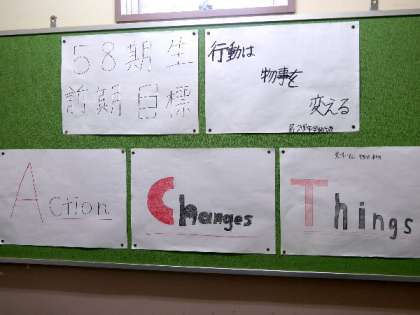 58期生
前期目標
行動は
物事を
変える
Action
Changes
Things